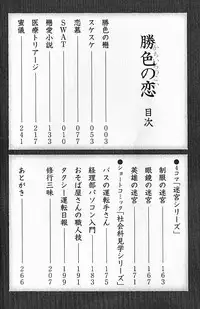 勝色の恋
目次
勝色の戀 003
スケスケ 053
恋墓 077
SWAT 010
戀愛小説 133
医療トリアージ 217
蜜儀 241
●4コマ「迷宮シリーズ」
制服の迷宮 163
眼鏡の迷宮 167
英雄の迷宮 171
●ショートコミック「社会科見学シリーズ」
バスの運転手さん 175
経理部パソコン入門 183
おそば屋さんの職人技 191
タクシー運転日報 199
修行三昧 207
あとがき 266